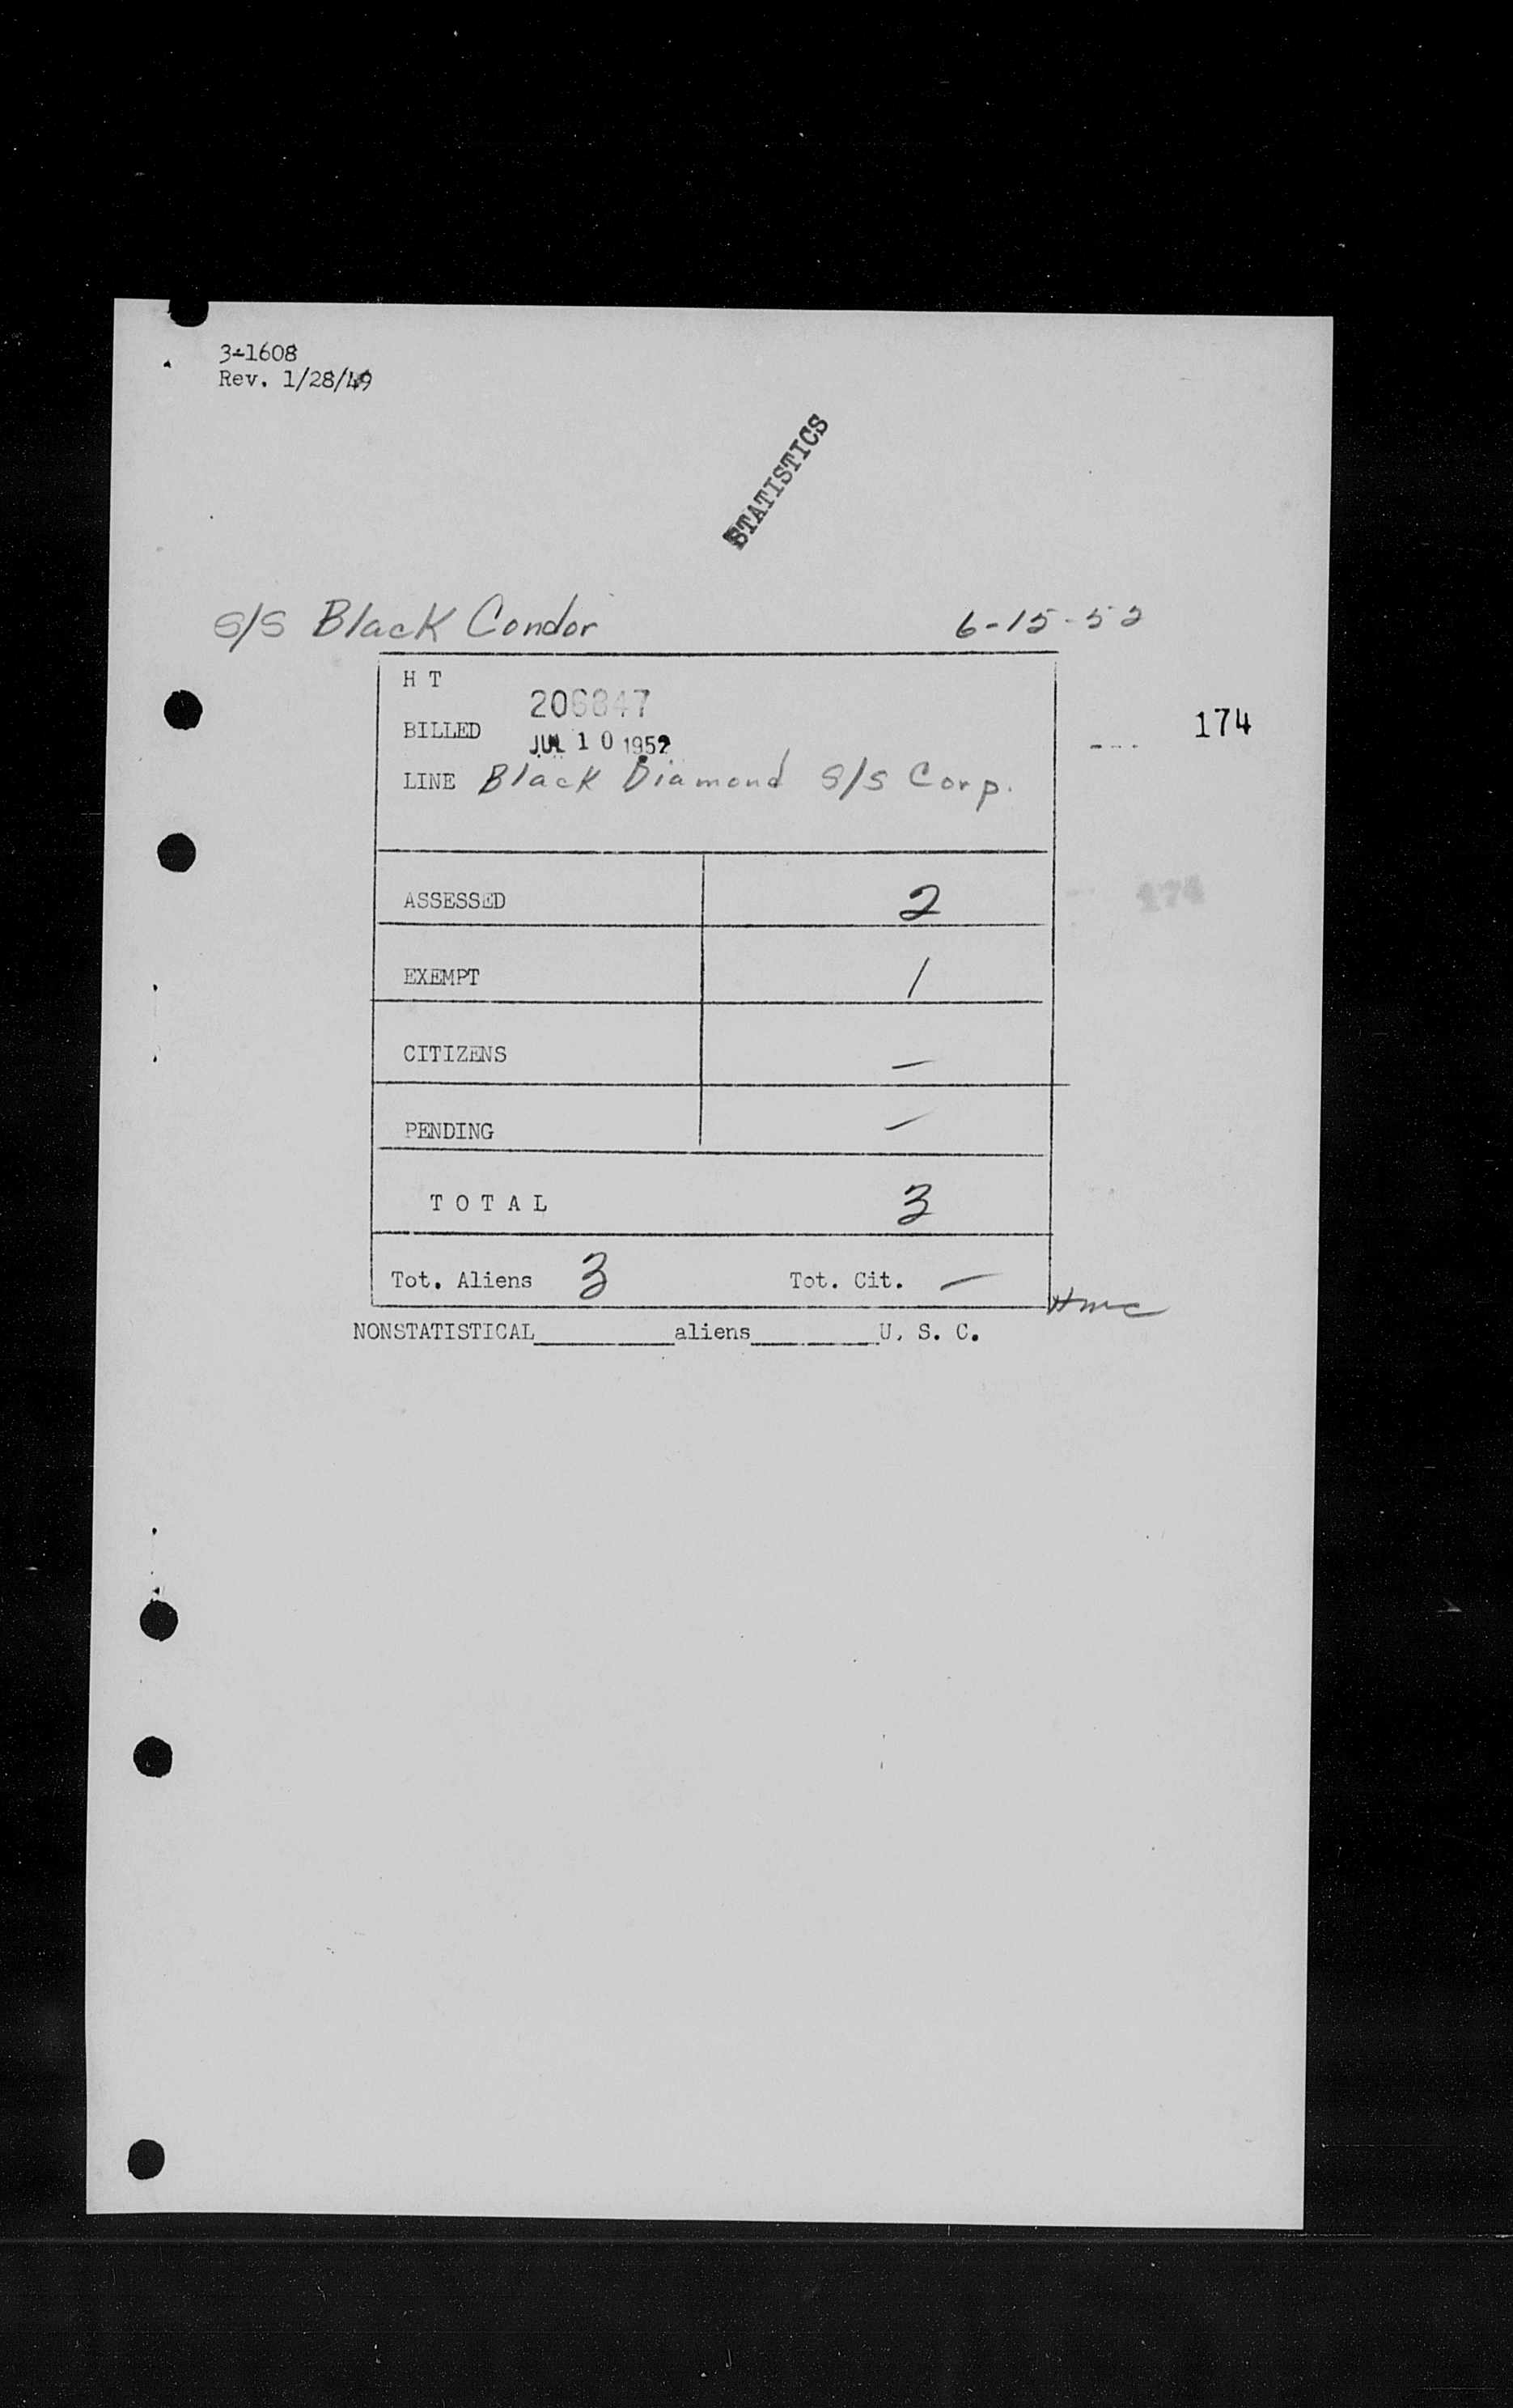 3-1608
Rev. 1/28/49
STATISTICS
S/S Black Condor 6-15-52
H T
206847
BILLED JUL 10 1952
174
LINE Black Diamond S/S Corp.
ASSESSED 2
174
EXEMPT 1
CITIZENS —
PENDING —
T O T A L 3
Tot. Aliens 3 Tot. Cit. —
Hmc
NONSTATISTICAL__________aliens__________U. S. C.